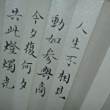 人生不相見
動如參與商
今夕復何夕
共此燈燭光